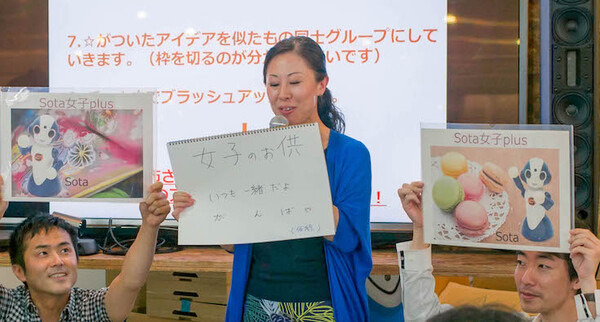 7.☆がついたアイデアを似たもの同士グループにして
いきます。（枠を切るのが分
いです）
ブラッシュアッ
Sota女子plus
Sota
女子のお供
いつも一緒だよ
がんば
Sota女子plus
Sota
！